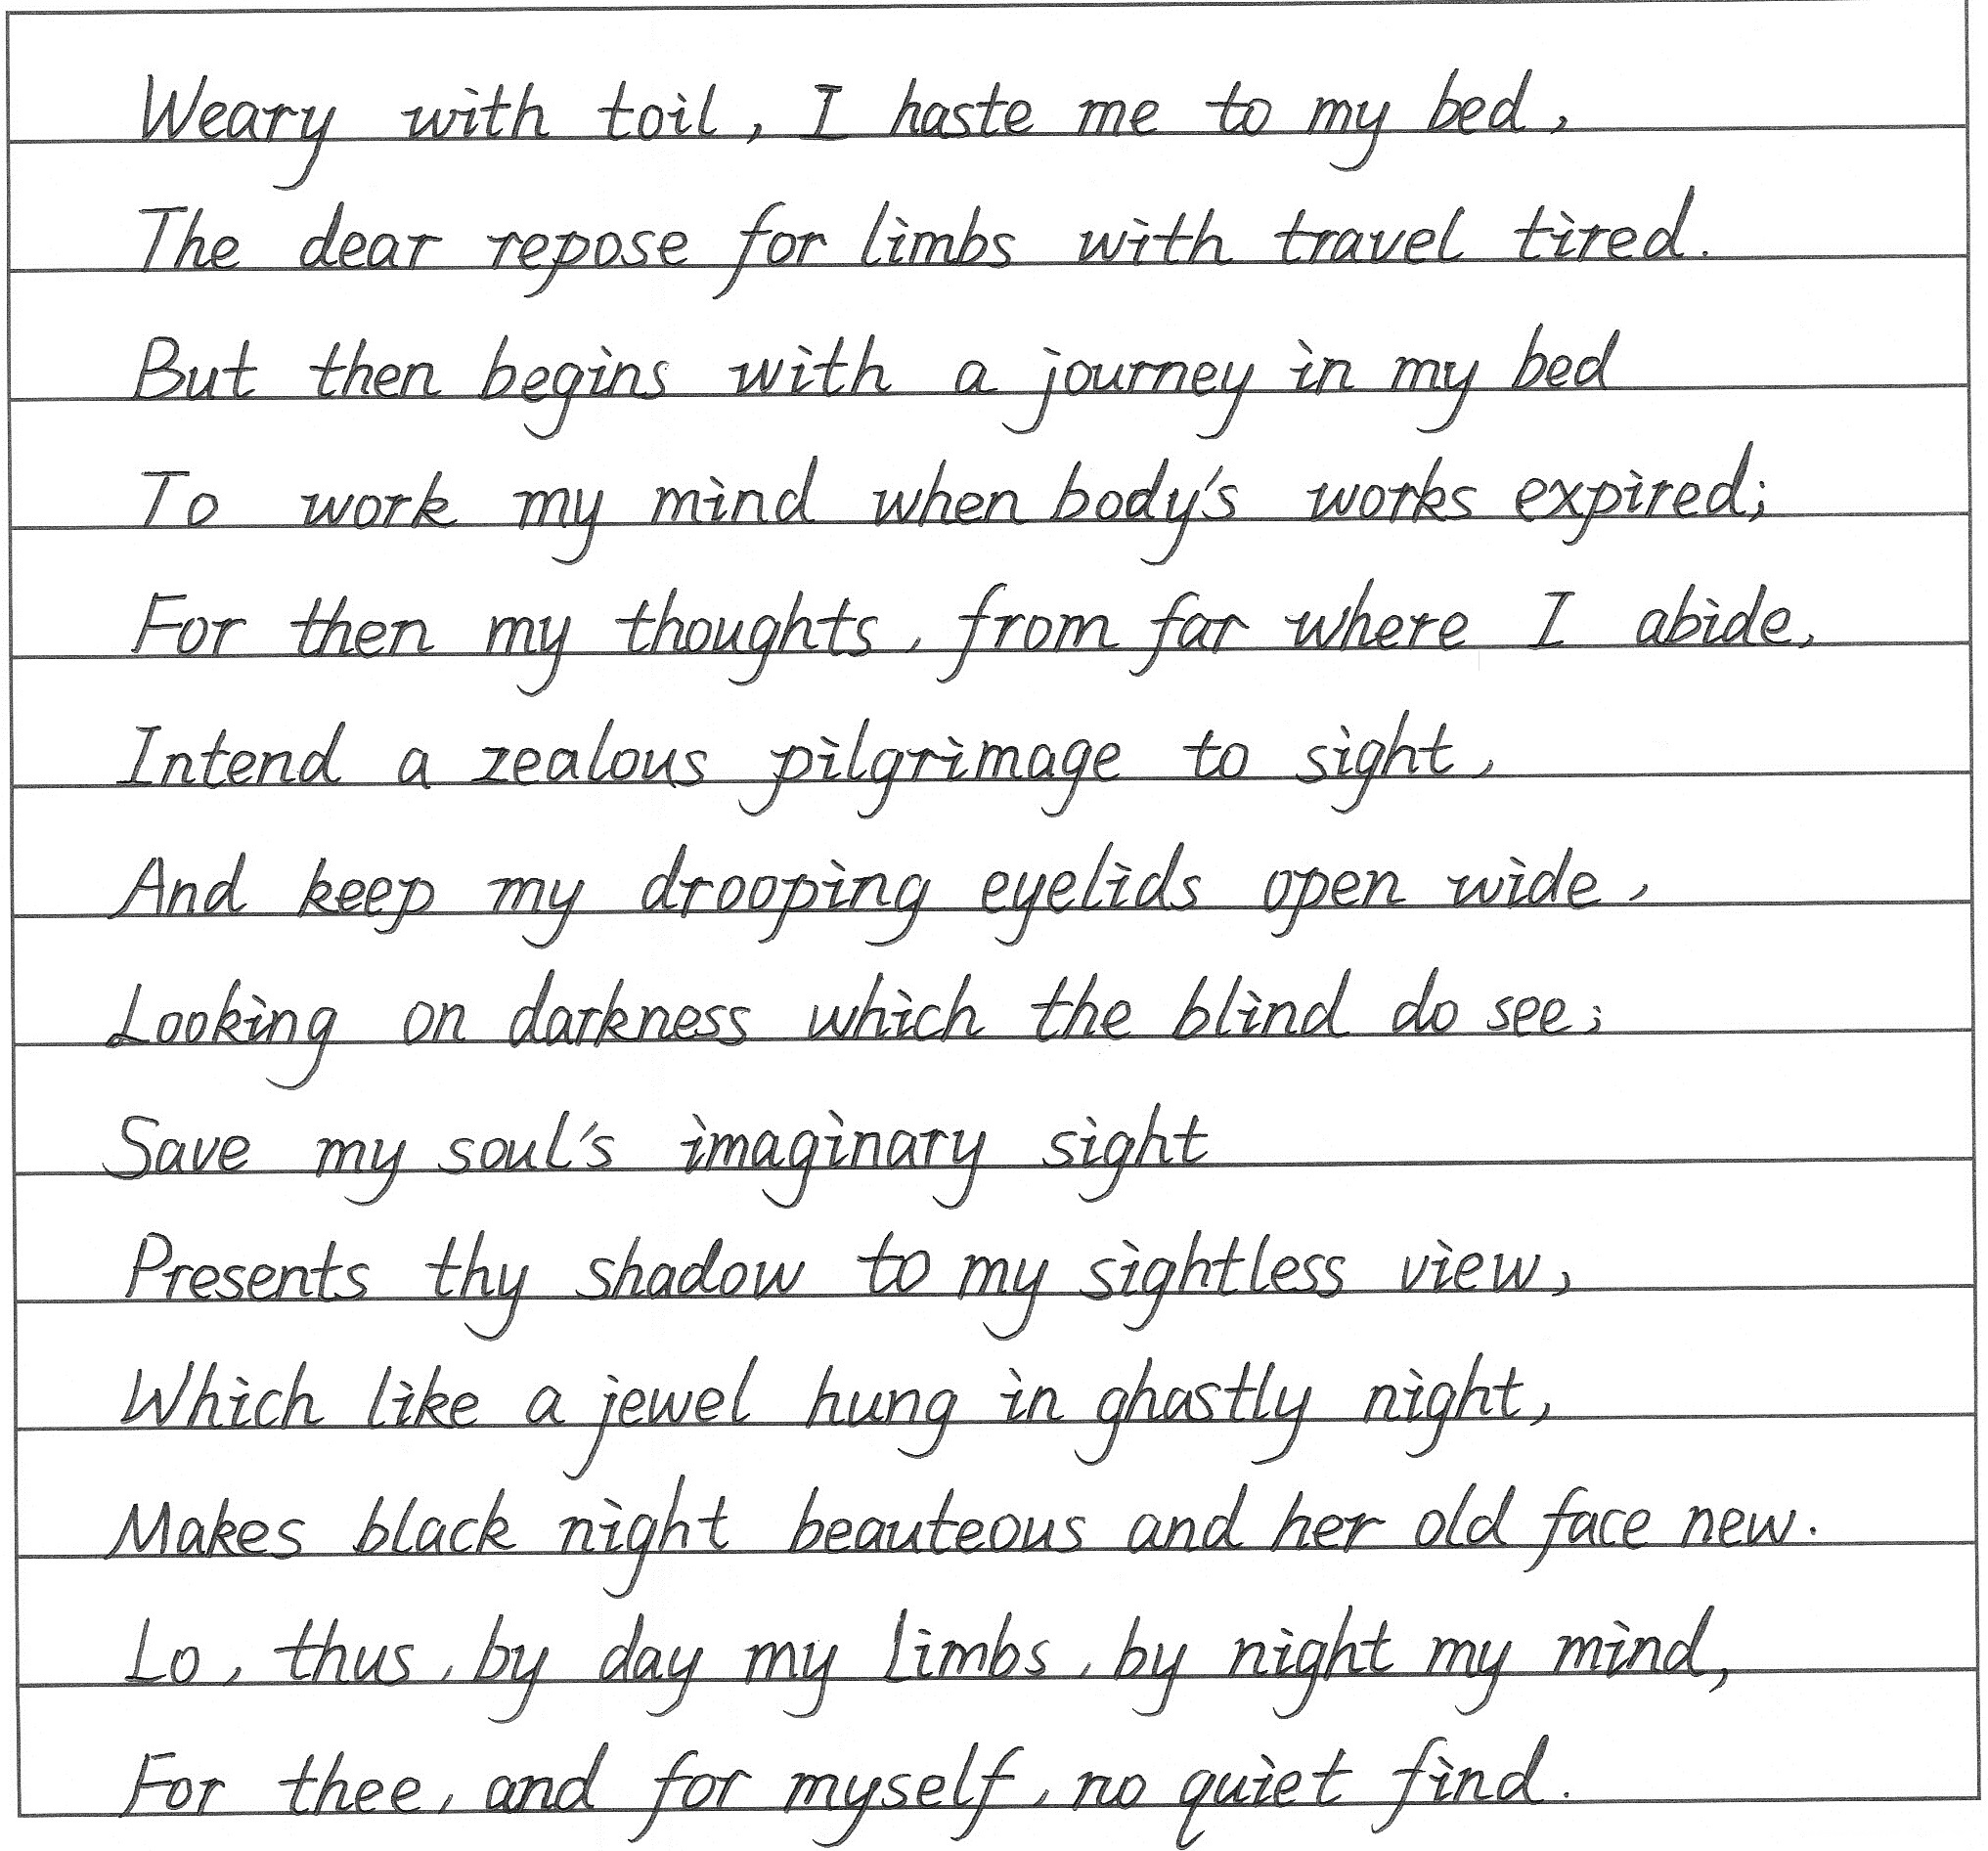 Weary with toil, I haste me to my bed,
The dear repose for limbs with travel tired.
But then begins with a journey in my bed
To work my mind when body's works expired;
For then my thoughts, from far where I abide,
Intend a zealous pilgrimage to sight,
And keep my drooping eyelids open wide,
Looking on darkness which the blind do see;
Save my soul's imaginary sight
Presents thy shadow to my sightless view,
Which like a jewel hung in ghastly night,
Makes black night beauteous and her old face new.
Lo, thus, by day my limbs, by night my mind,
For thee, and for myself, no quiet find.